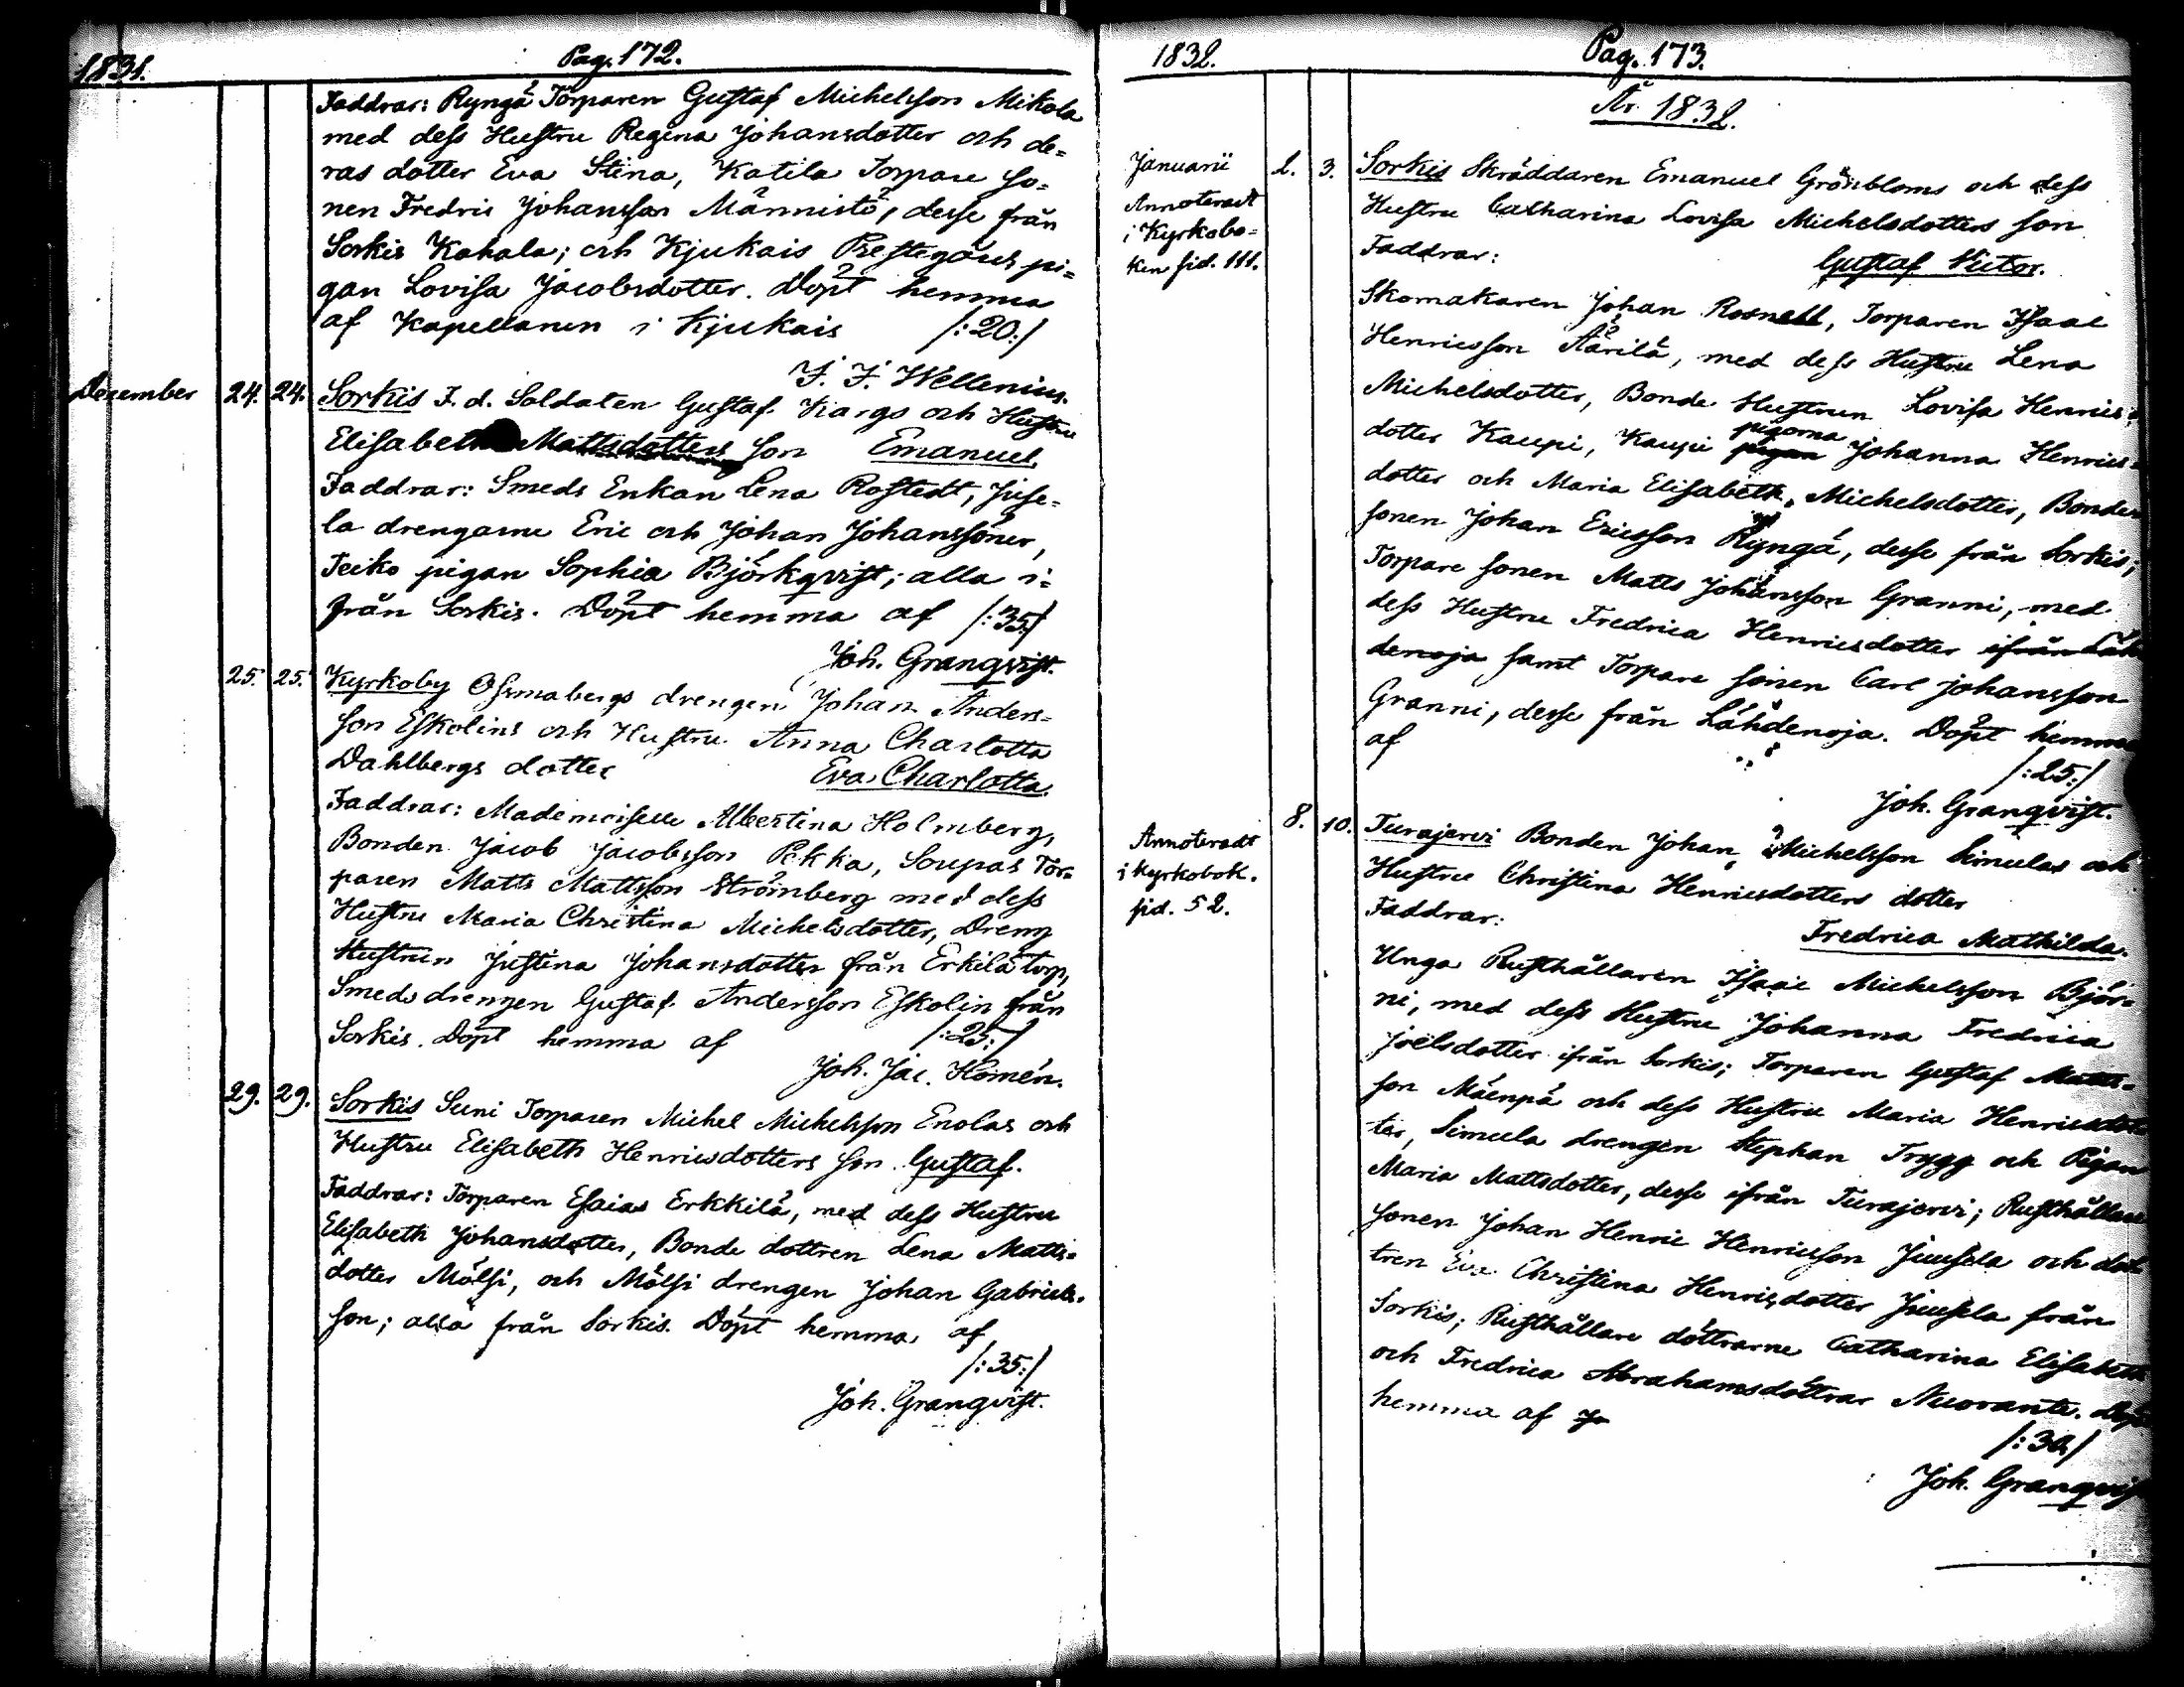 1831.
Pag. 172.
Faddrar: Ryngä Torparen Gustaf Michelsson Mikola
med dess Hustru Regina Johansdotter och de=
ras dotter Eva Stina, Katila Torpare so=
nen Fredric Johansson Männistö, desse från
Sorkis Kahala; och Kjukais Prestegårds pi=
gan Lovisa Jacobsdotter. Döpt hemma
af Kapellanen i Kjukais /:20:/
F. F. Wellenius.
December 24. 24. Sorkis F. d. Soldaten Gustaf Kargs och Hustru
Elisabeth Mattsdotters son Emanuel.
Faddrar: Smeds Enkan Lena Rostedt, Juse=
la drengarne Eric och Johan Johanssöner,
Teiko pigan Sophia Björkqvist; alla i=
från Sorkis. Döpt hemma af /:35:/
Joh. Granqvist.
25. 25. Kyrkoby Osmabergs drengen Johan Anders=
son Eskolins och Hustru Anna Charlotta
Dahlbergs dotter Eva Charlotta.
Faddrar: Mademoiselle Albertina Holmberg,
Bonden Jacob Jacobsson Pekka, Soupas Tor=
paren Matts Mattsson Strömberg med dess
Hustru Maria Christina Michelsdotter, Dreng
Hustrun Justina Johansdotter från Erkilä torp,
Smeds drengen Gustaf Andersson Eskolin från
Sorkis. Döpt hemma af /:25:/
Joh. Jac. Homén.
29. 29. Sorkis Suni Torparen Michel Michelsson Enolas och
Hustru Elisabeth Henricsdotters son Gustaf.
Faddrar: Torparen Esaias Erkkilä, med dess Hustru
Elisabeth Johansdotter, Bonde dottren Lena Matts=
dotter Mölsi, och Mölsi drengen Johan Gabriels=
son; alla från Sorkis. Döpt hemma af
/:35:/
Joh. Granqvist.
1832.
Pag. 173.
År 1832.
Januarii 2. 3. Sorkis Skräddaren Emanuel Grönbloms och dess
Hustru Catharina Lovisa Michelsdotters son
Annoteradt
i Kyrkobo=
ken sid. 111.
Faddrar: Gustaf Victor.
Skomakaren Johan Rosnell, Torparen Isaac
Henricsson Äärilä, med dess Hustru Lena
Michelsdotter, Bonde Hustrun Lovisa Henrics=
dotter Kaupi, Kaupi pigan pigorna Johanna Henrics=
dotter och Maria Elisabeth Michelsdotter, Bonde
sonen Johan Ericsson Ryngä, desse från Sorkis;
Torpare sonen Matts Johansson Granni, med
dess Hustru Fredrica Henricsdotter ifrån Läh
denoja samt Torpare sonen Carl Johansson
Granni, desse från Lähdenoja. Döpt hemma
af
/:25:/
Joh. Granqvist.
8. 10. Turajervi Bonden Johan Michelsson Simulas och
Hustru Christina Henricsdotters dotter
Annoteradt
i Kyrkobok.
sid. 52.
Faddrar:
Fredrica Mathilda.
Unga Rusthållaren Isaac Michelsson Björ=
ni, med dess Hustru Johanna Fredrica
Joëlsdotter ifrån Sorkis; Torparen Gustaf Matts=
son Mäenpä och dess Hustru Maria Henricsdot
ter, Simula drengen Stephan Trygg och Pigan
Maria Mattsdotter, desse ifrån Turajervi; Rusthållare
sonen Johan Henric Henricsson Juusela och dot
tren Eva Christina Henricsdotter Juusela från
Sorkis; Rusthållare döttrarne Catharina Elisabeth
och Fredrica Abrahamsdöttrar Nuoranti. Döpt
hemma af Jo
/:30:/
Joh. Granqvist